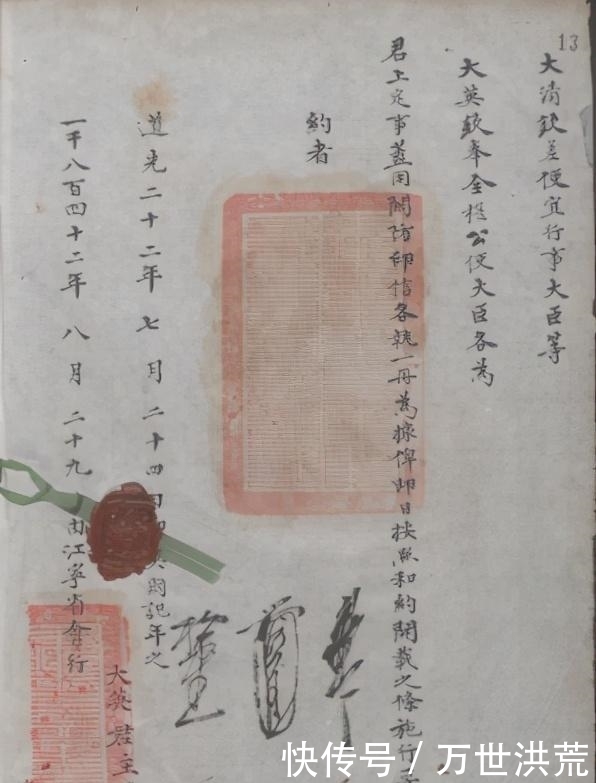 13
大清欽差便宜行事大臣等
大英欽奉全權公使大臣各為
君上定事蓋用關防印信各執一冊為據俾即日按照和約開載之條施行
約者
道光二十二年七月二十四日 英國記年之
一千八百四十二年八月二十九 由江寧省會行
大英君主
快传号/万世洪荒